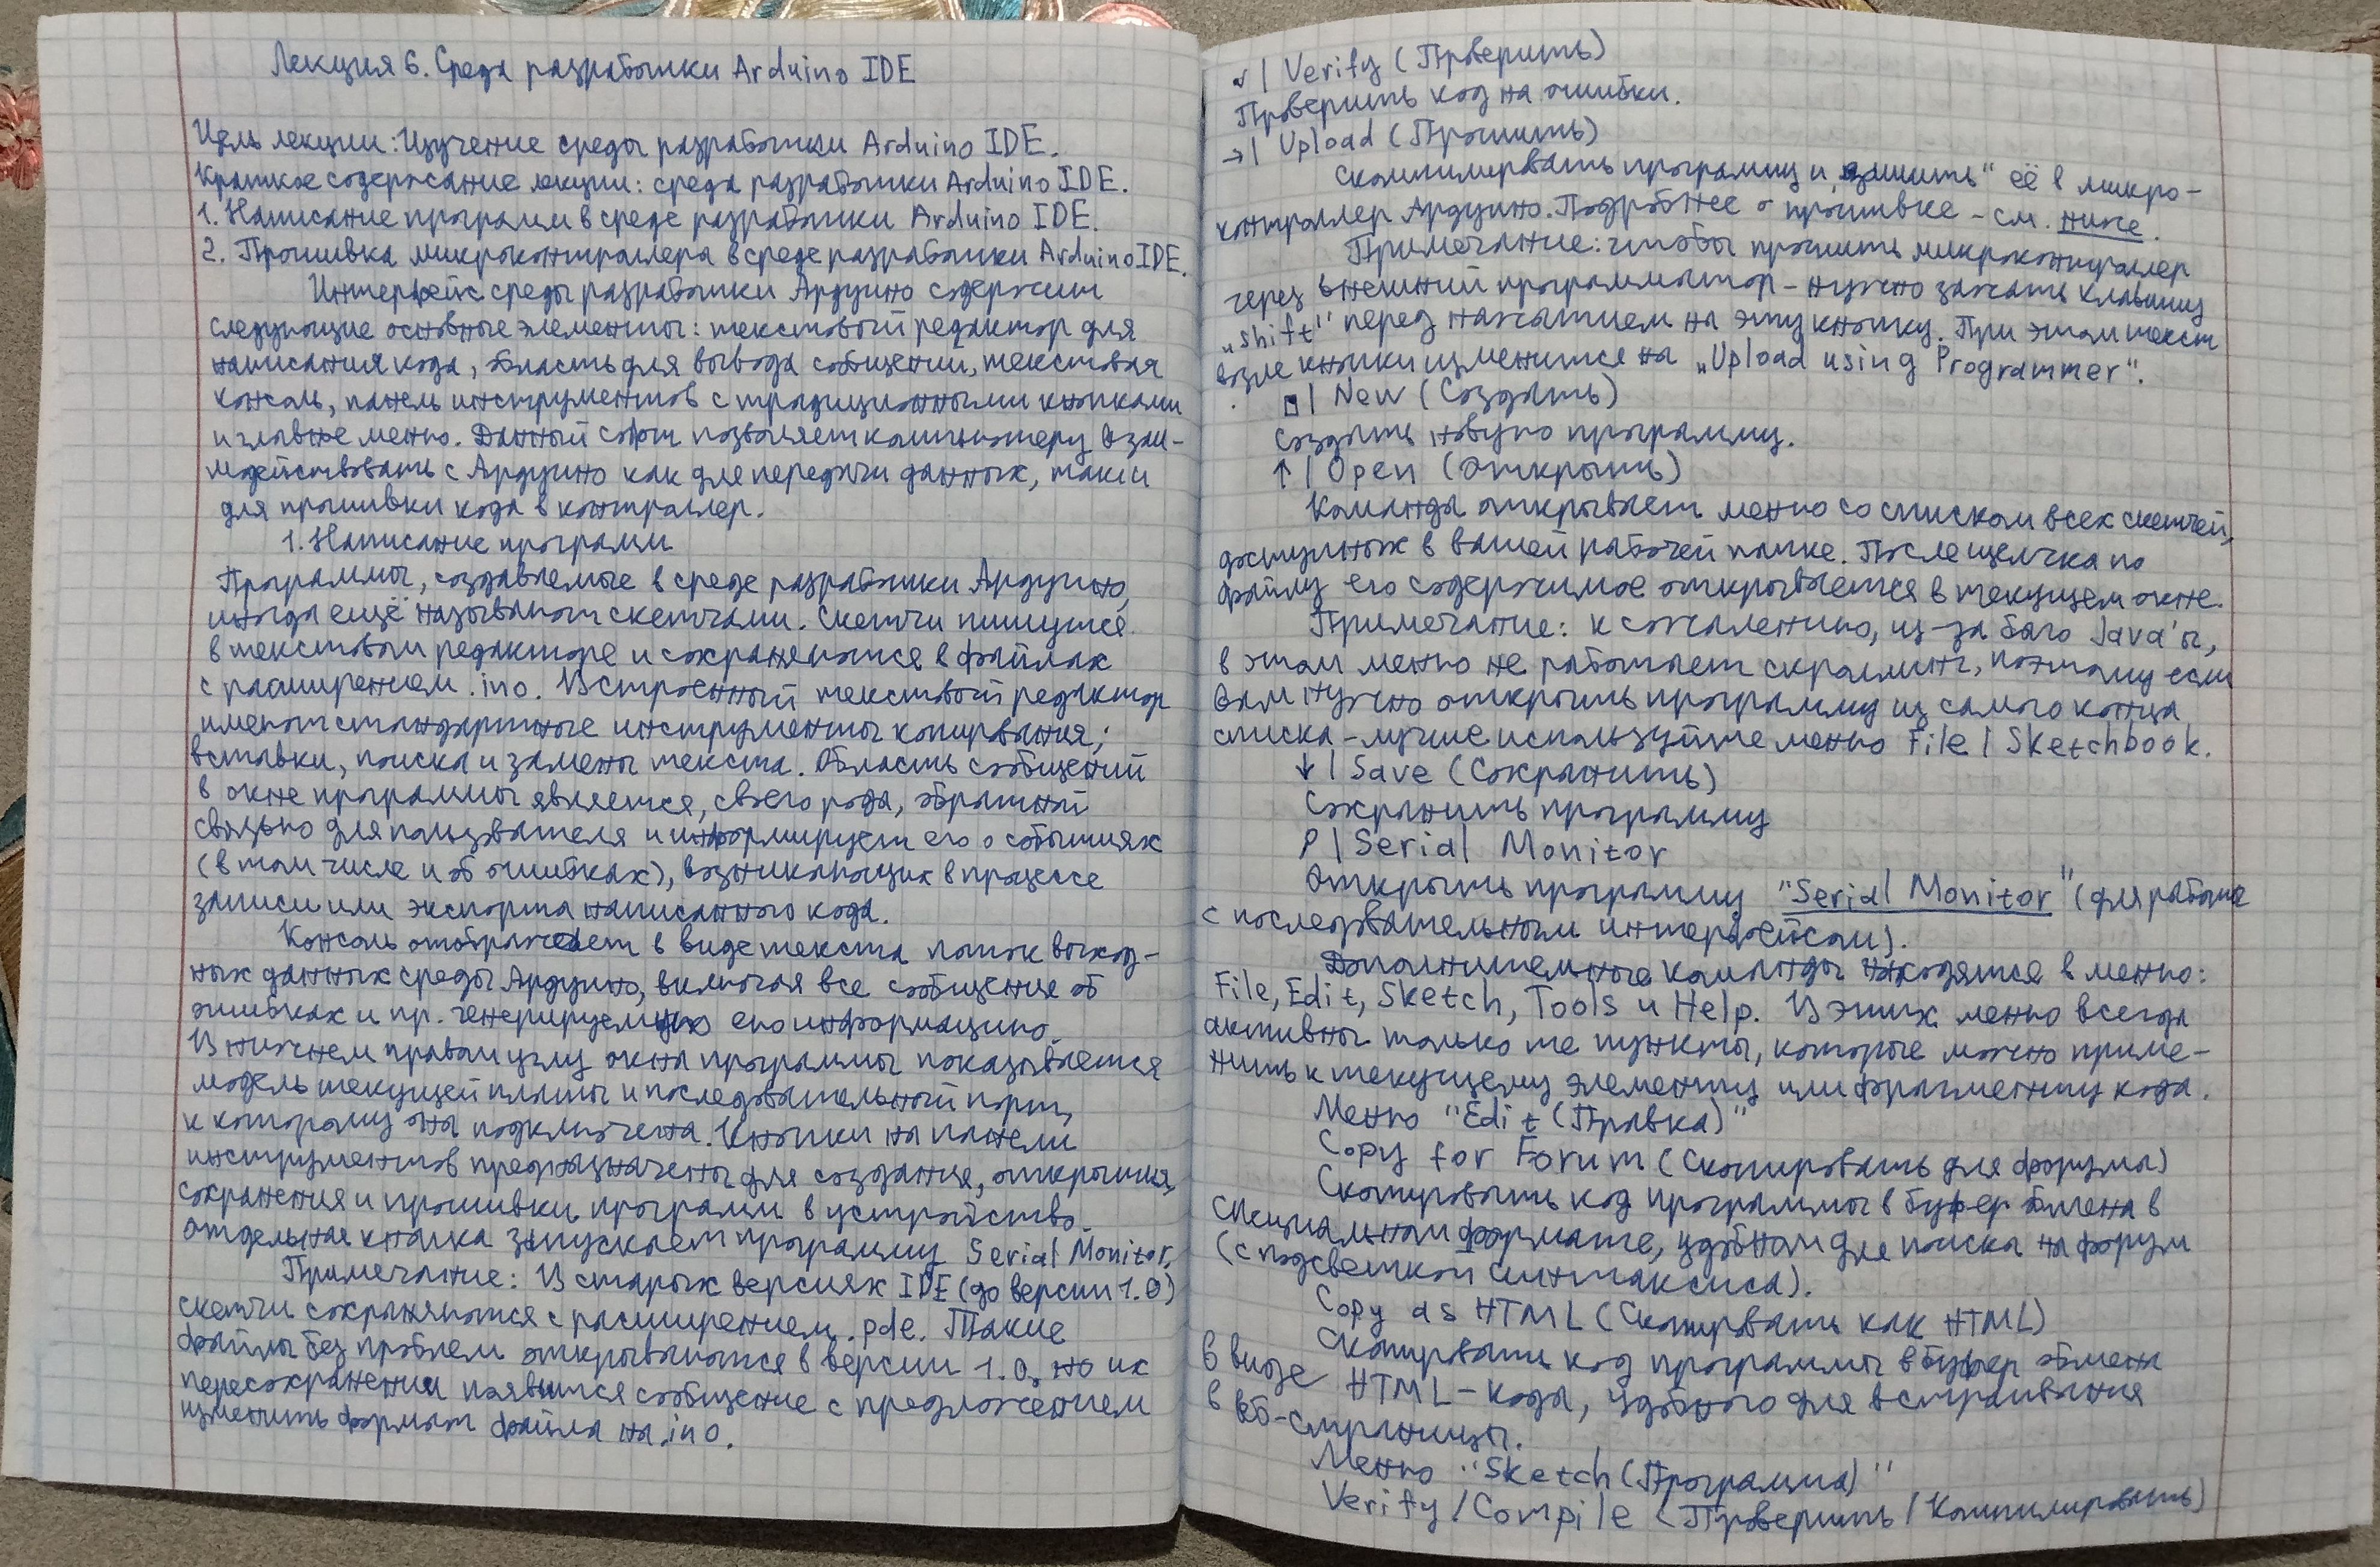 Лекция 6. Среда разработки Arduino IDE
Цель лекции: Изучение среды разработки Arduino IDE.
Краткое содержание лекции: среда разработки Arduino IDE.
1. Написание программ в среде разработки Arduino IDE.
2. Прошивка микроконтроллера в среде разработки Arduino IDE.
Интерфейс среды разработки Ардуино содержит
следующие основные элементы: текстовый редактор для
написания кода, область для вывода сообщений, текстовая
консоль, панель инструментов с традиционными кнопками
и главное меню. Данный софт позволяет компьютеру взаи-
модействовать с Ардуино как для передачи данных, так и
для прошивки кода в контроллер.
1. Написание программ
Программы, создаваемые в среде разработки Ардуино,
иногда ещё называют скетчами. Скетчи пишутся
в текстовом редакторе и сохраняются в файлах
с расширением .ino. Встроенный текстовый редактор
имеют стандартные инструменты копирования,
вставки, поиска и замены текста. Область сообщений
в окне программы является, своего рода, обратной
связью для пользователя и информирует его о событиях
(в том числе и об ошибках), возникающих в процессе
записи или экспорта написанного кода.
Консоль отображает в виде текста поток выход-
ных данных среды Ардуино, включая все сообщения об
ошибках и пр. генерируемую ею информацию.
В нижнем правом углу окна программы показывается
модель текущей платы и последовательный порт,
к которому она подключена. Кнопки на панели
инструментов предназначены для создания, открытия,
сохранения и прошивки программ в устройство.
Отдельная кнопка запускает программу Serial Monitor.
Примечание: В старых версиях IDE (до версии 1.0)
скетчи сохраняются с расширением .pde. Такие
файлы без проблем открываются в версии 1.0, но их
пересохранении появится сообщение с предложением
изменить формат файла на .ino.
✓ | Verify (Проверить)
Проверить код на ошибки.
→ | Upload (Прошить)
Скомпилировать программу и „зашить" её в микро-
контроллер Ардуино. Подробнее о прошивке - см. ниже.
Примечание: чтобы прошить микроконтроллер
через внешний программатор - нужно зажать клавишу
„shift" перед нажатием на эту кнопку. При этом текст
возле кнопки изменится на „Upload using Programmer".
□ | New (Создать)
Создать новую программу.
↑ | Open (Открыть)
Команда открывает меню со списком всех скетчей,
доступных в вашей рабочей папке. После щелчка по
файлу его содержимое открывается в текущем окне.
Примечание: к сожалению, из-за баго Java'ы,
в этом меню не работает скроллинг, поэтому если
вам нужно открыть программу из самого конца
списка - лучше используйте меню File | Sketchbook.
↓ | Save (Сохранить)
Сохранить программу
ρ | Serial Monitor
Открыть программу "Serial Monitor" (для работы
с последовательным интерфейсом).
Дополнительные команды находятся в меню:
File, Edit, Sketch, Tools и Help. В этих меню всегда
активны только те пункты, которые можно приме-
нить к текущему элементу или фрагменту кода.
Меню "Edit (Правка)"
Copy for Forum (Скопировать для форума)
Скопировать код программы в буфер обмена в
специальном формате, удобном для поиска на форум
(с подсветкой синтаксиса).
Copy as HTML (Скопировать как HTML)
Скопировать код программы в буфер обмена
в виде HTML-кода, удобного для встраивания
в веб-страницы.
Меню "Sketch (Программа)"
Verify / Compile (Проверить / Компилировать)